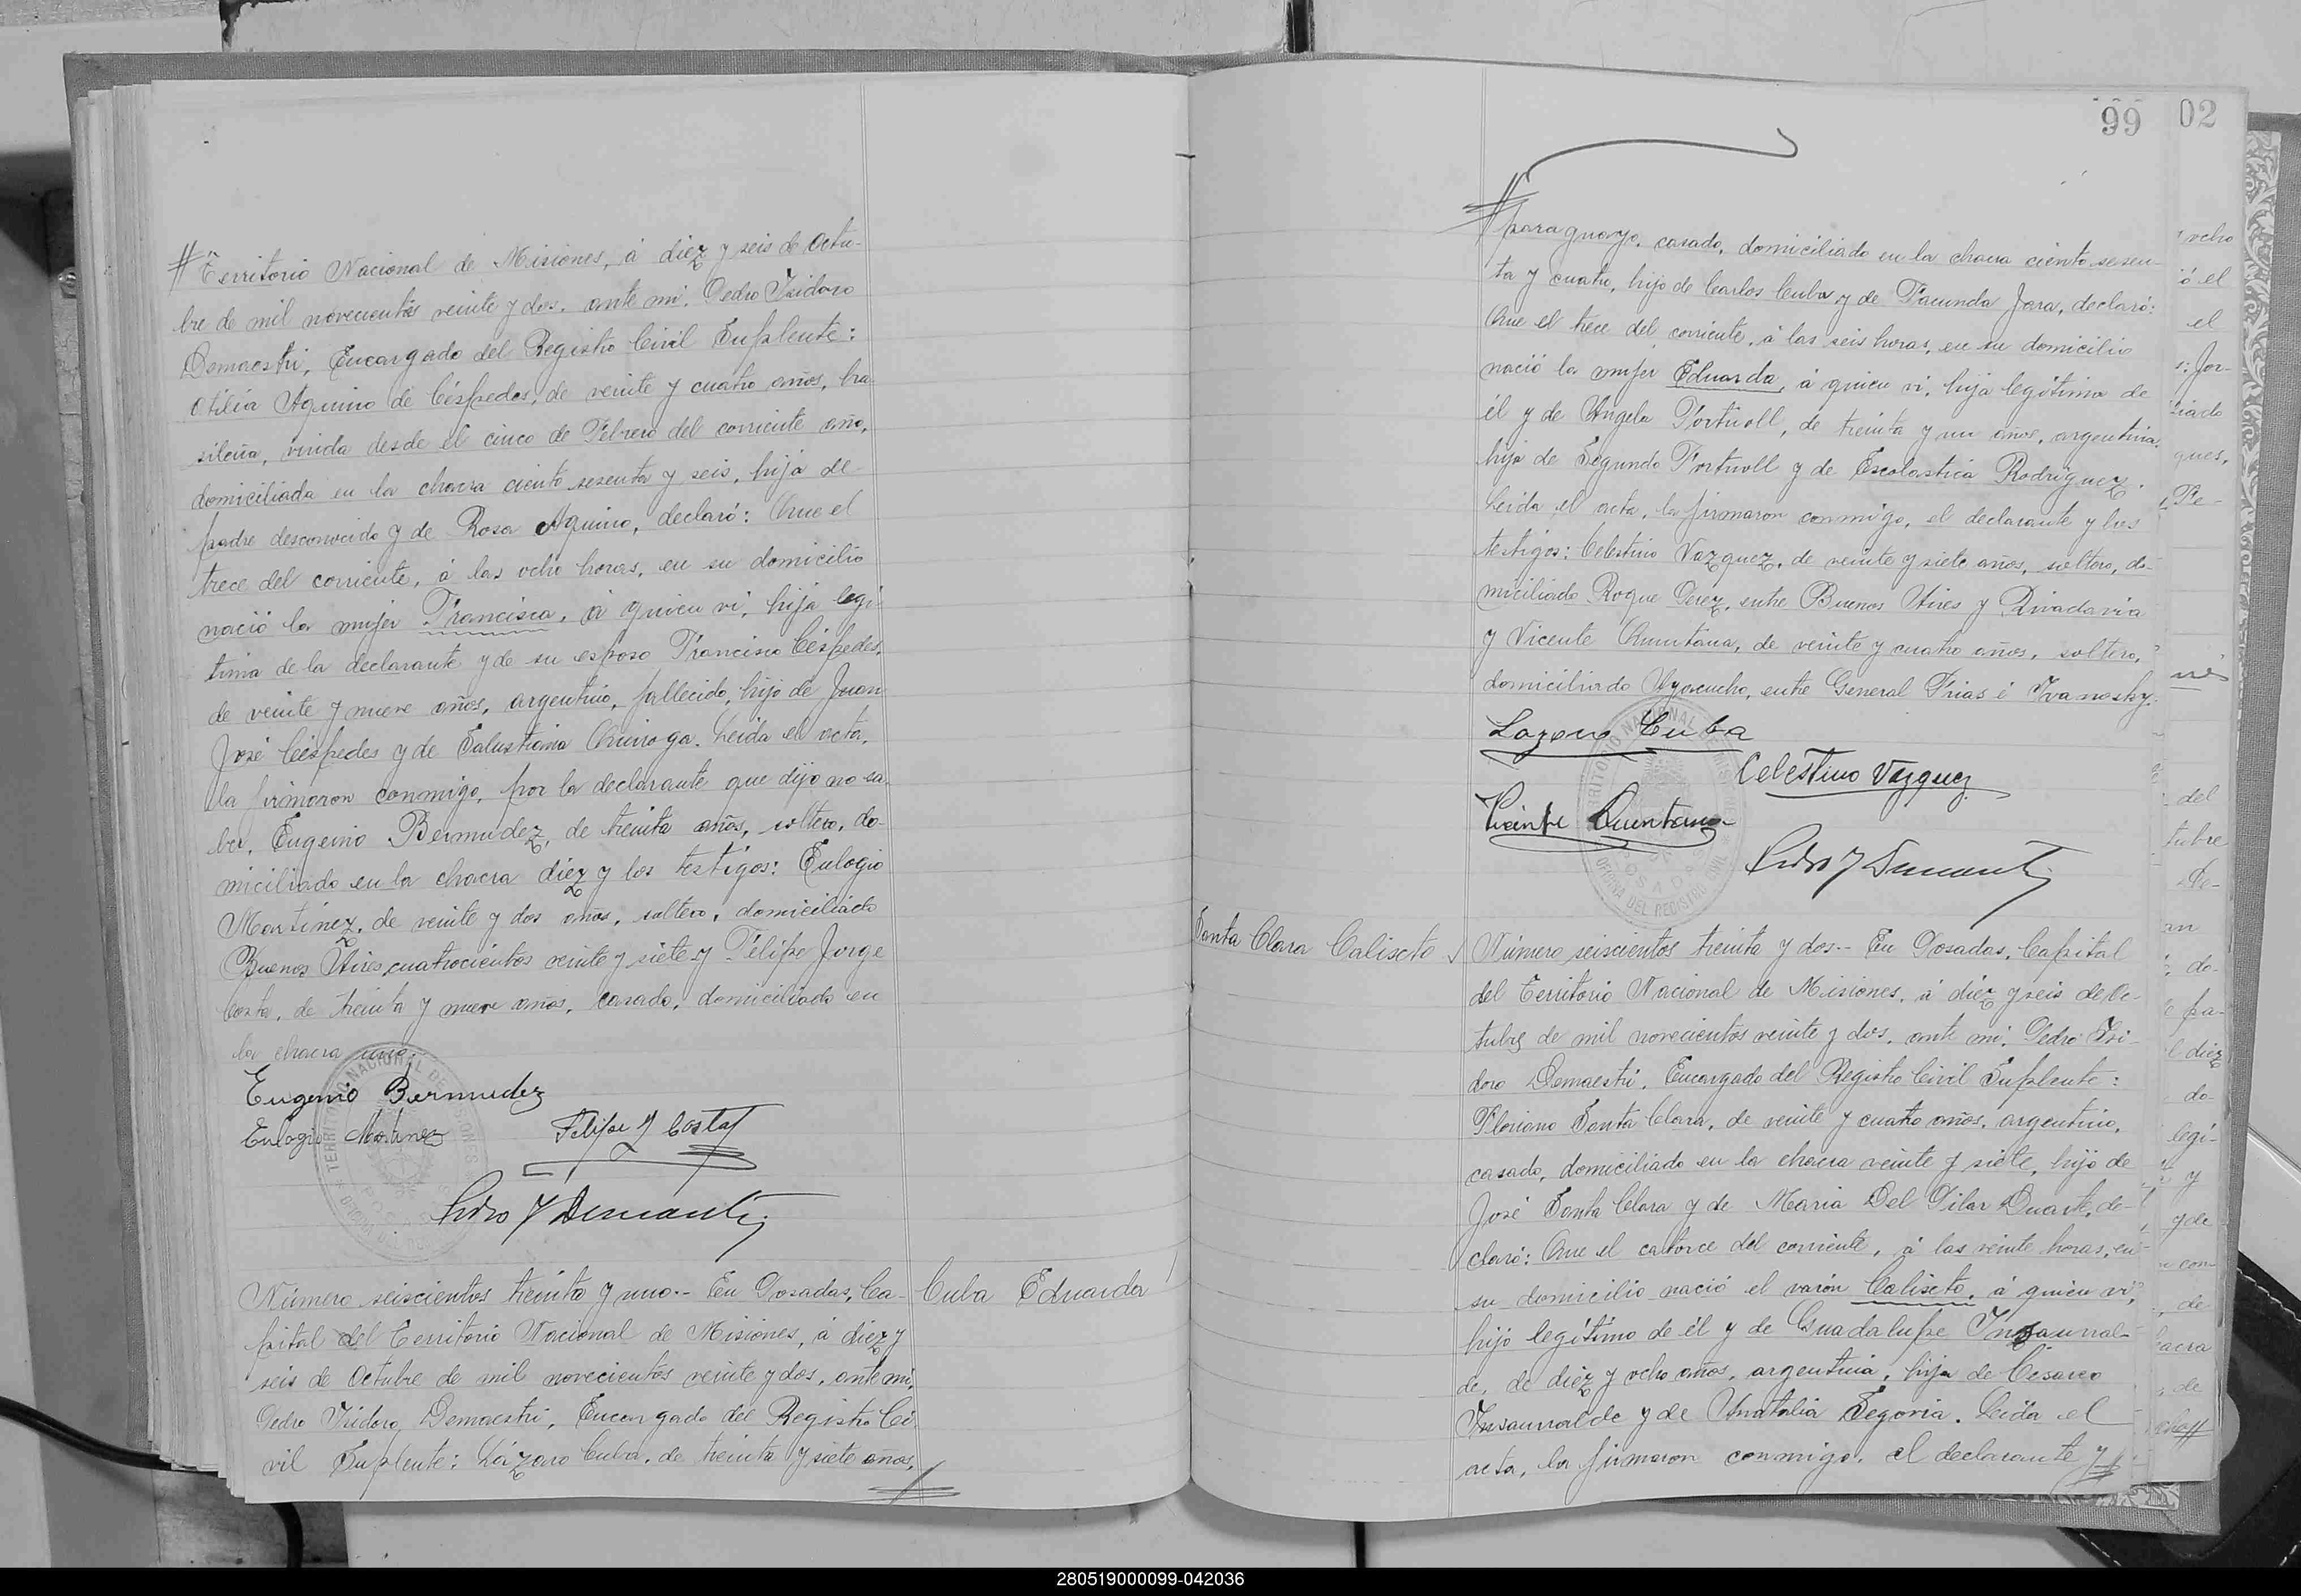 # Territorio Nacional de Misiones, á diez y seis de Octu-
bre de mil novecientos veinte y dos, ante mí, Pedro Isidoro
Demaestri, Encargado del Registro Civil Suplente:
Otilia Aquino de Céspedes, de veinte y cuatro años, bra-
sileña, viuda desde el cinco de Febrero del corriente año,
domiciliada en la chacra ciento sesenta y seis, hija de
padre desconocido y de Rosa Aquino, declaró: Que el
trece del corriente, á las ocho horas, en su domicilio
nació la mujer Francisca, á quien vi, hija legí-
tima de la declarante y de su esposo Francisco Céspedes,
de veinte y nueve años, argentino, fallecido, hijo de Juan
José Céspedes y de Salustiana Quiroga. Leida el acta,
la firmaron conmigo, por la declarante que dijo no sa-
ber, Eugenio Bermudez, de treinta años, soltero, do-
miciliado en la chacra diez y los testigos: Eulogio
Martínez, de veinte y dos años, soltero, domiciliado
Buenos Aires cuatrocientos veinte y siete y Félipe Jorge
Costa, de treinta y nueve años, casado, domiciliado en
la chacra uno.
Eugenio Bermudez
Eulogio Martinez
Felipe J Costa
Pedro I Demaestri
TERRITORIO NACIONAL DE MISIONES
POSADAS
OFICINA DEL REGISTRO CIVIL
Cuba Eduarda
Número seiscientos treinta y uno.- En Posadas, Ca-
pital del Territorio Nacional de Misiones, á diez y
seis de Octubre de mil novecientos veinte y dos, ante mí,
Pedro Isidoro Demaestri, Encargado del Registro Ci-
vil Suplente: Lázaro Cuba, de treinta y siete años,
99
02
# paraguayo, casado, domiciliado en la chacra ciento sesen-
ta y cuatro, hijo de Carlos Cuba y de Facunda Jara, declaró:
Que el trece del corriente, á las seis horas, en su domicilio
nació la mujer Eduarda, á quien vi, hija legítima de
él y de Angela Portuoll, de treinta y un años, argentina,
hija de Segundo Portuoll y de Escolastica Rodríguez.
Leida el acta, la firmaron conmigo, el declarante y los
testigos: Celestino Vazquez, de veinte y siete años, soltero, do-
miciliado Roque Perez, entre Buenos Aires y Rivadavia
y Vicente Quintana, de veinte y cuatro años, soltero,
domiciliado Ayacucho, entre General Frias é Ivanosky.
Lazaro Cuba
Celestino Vazquez
Vicente Quintana
Pedro I Demaestri
TERRITORIO NACIONAL DE MISIONES
POSADAS
OFICINA DEL REGISTRO CIVIL
Santa Clara Caliscto
Número seiscientos treinta y dos.- En Posadas, Capital
del Territorio Nacional de Misiones, á diez y seis de Oc-
tubre de mil novecientos veinte y dos, ante mí, Pedro Isi-
doro Demaestri, Encargado del Registro Civil Suplente:
Floriano Santa Clara, de veinte y cuatro años, argentino,
casado, domiciliado en la chacra veinte y siete, hijo de
José Santa Clara y de Maria Del Pilar Duarte, de-
claró: Que el catorce del corriente, á las veinte horas, en
su domicilio nació el varón Caliscto, á quien vi,
hijo legítimo de él y de Guadalupe Insaurral-
de, de diez y ocho años, argentina, hija de Cesareo
Insaurralde y de Anatalia Segovia. Leida el
acta, la firmaron conmigo, el declarante y
280519000099-042036